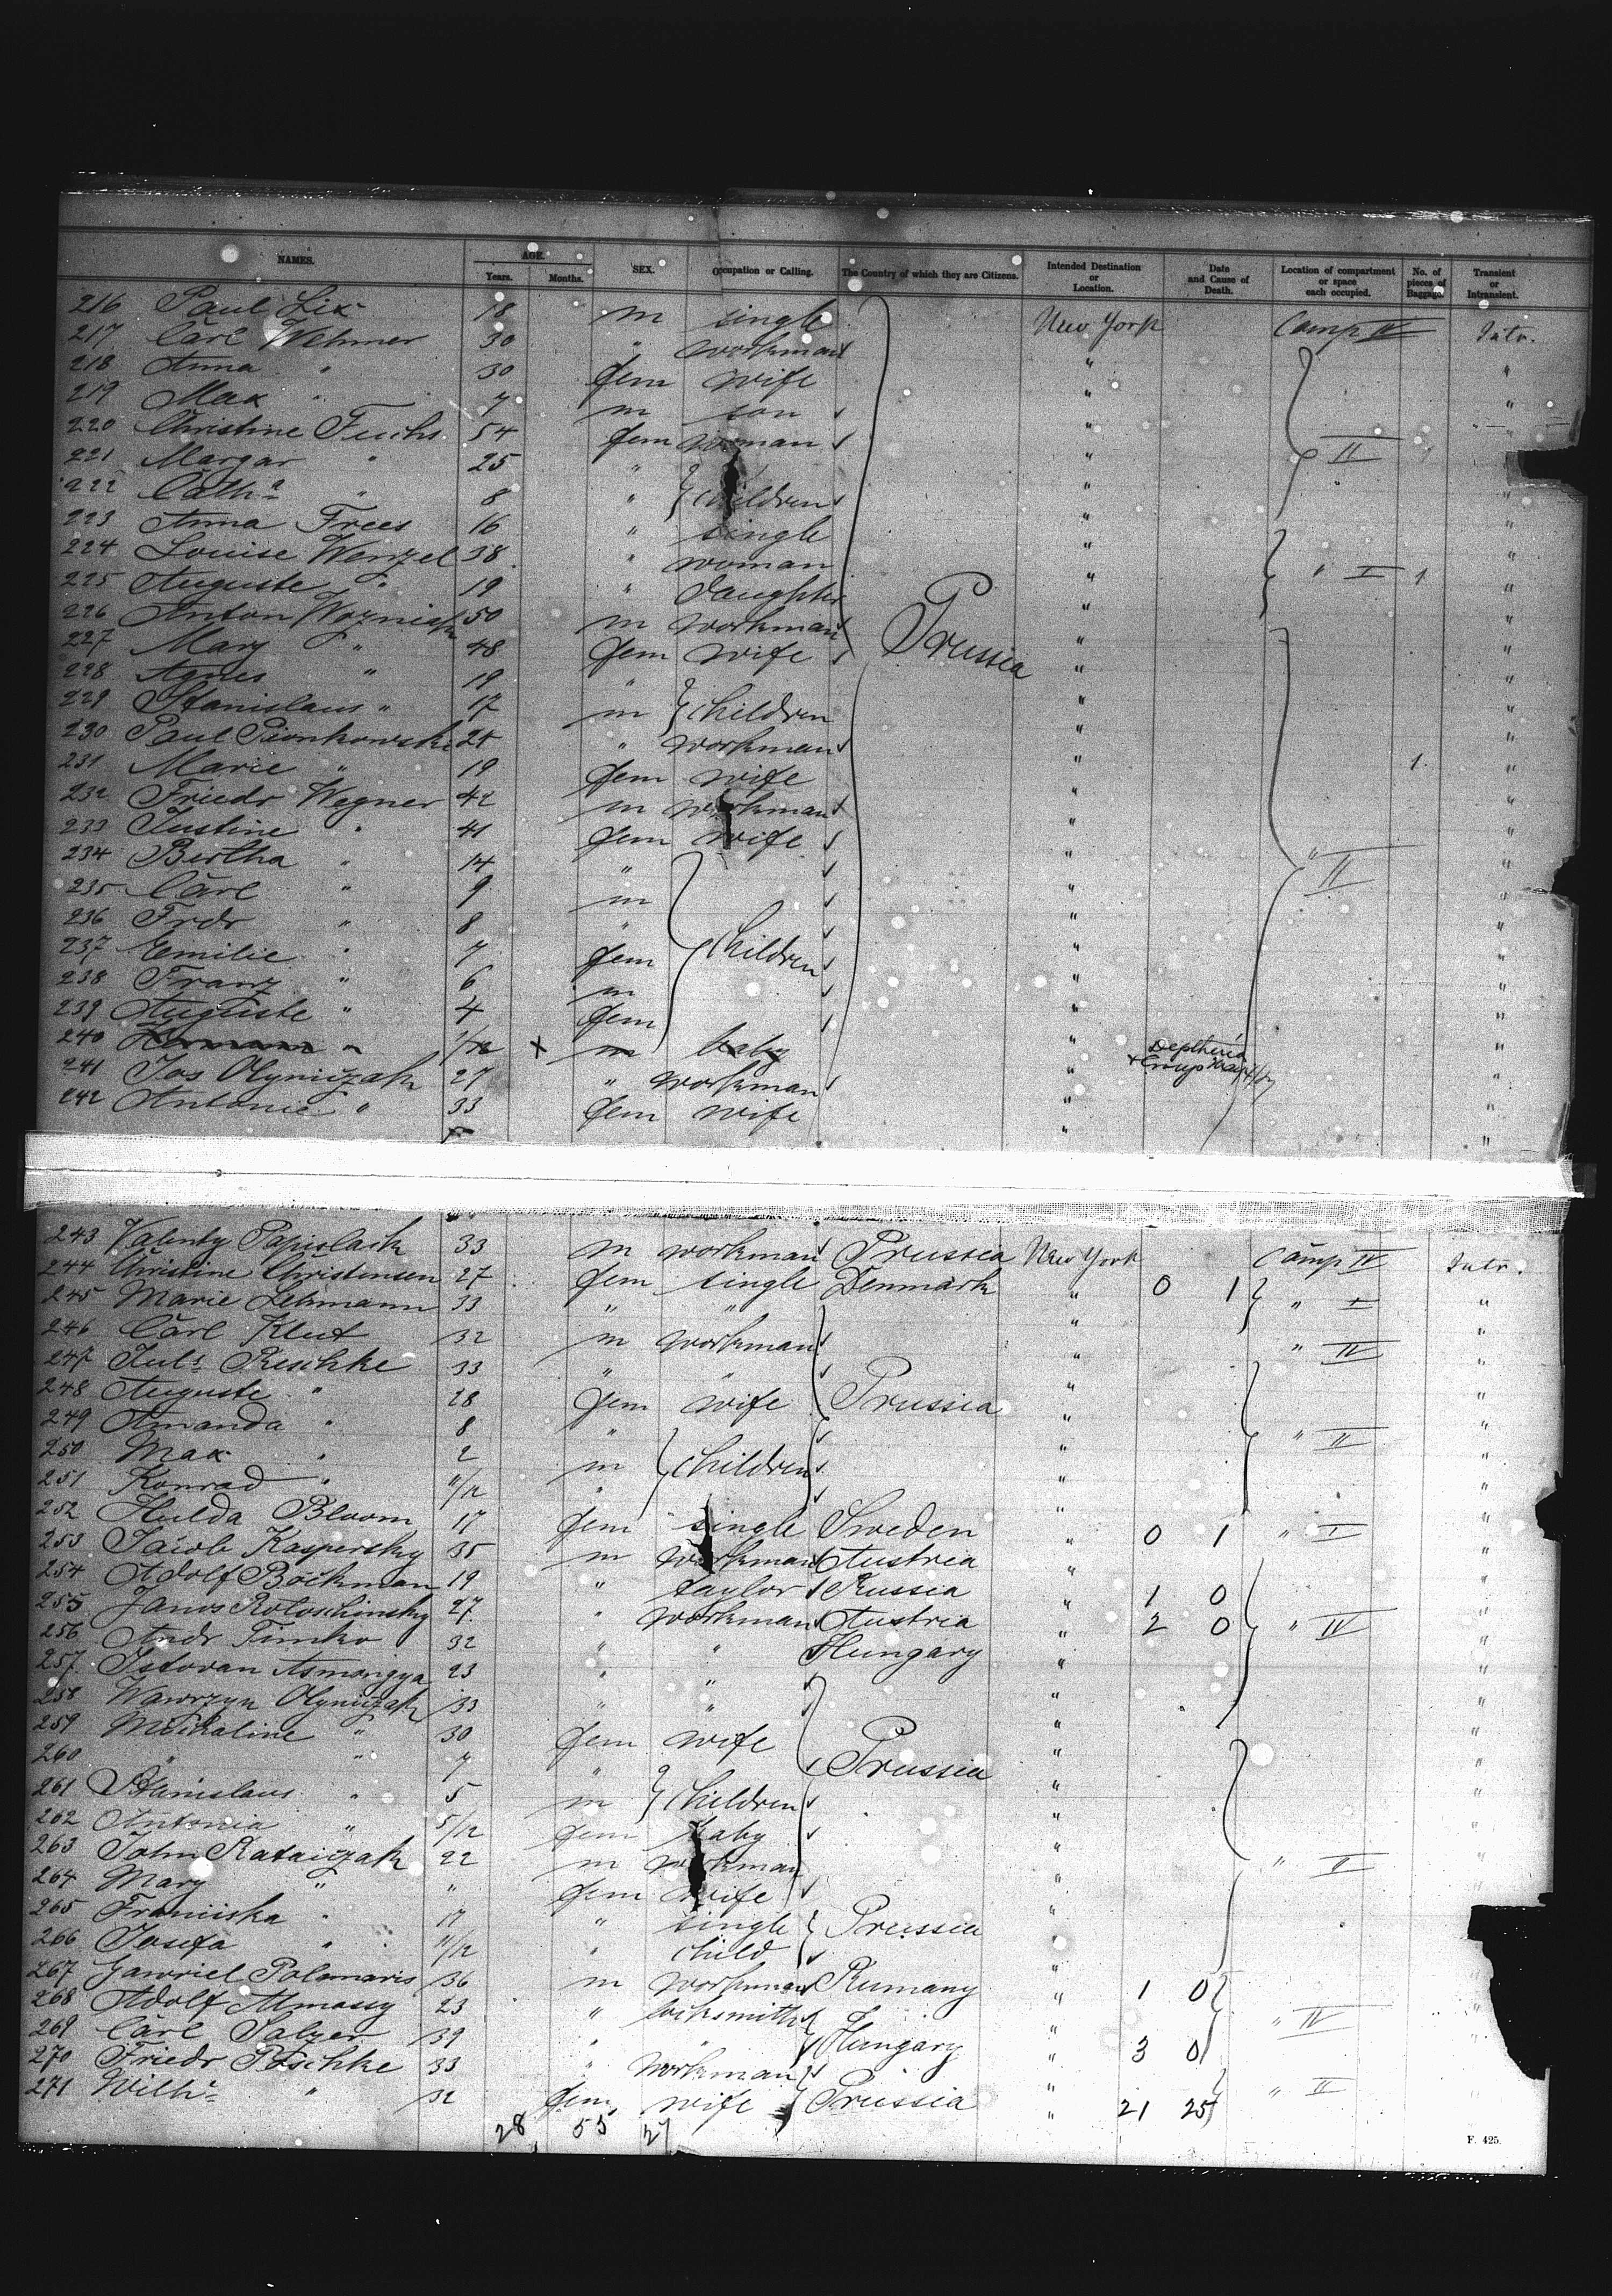 NAMES. AGE. Years. Months. SEX. Occupation or Calling. The Country of which they are Citizens. Intended Destination or Location. Date and Cause of Death. Location of compartment or space each occupied. No. of pieces of Baggage. Transient or Intransient.
216 Paul Lix 18 m single New York Comp IV Intr.
217 Carl Wehmer 30 " workman " "
218 Anna " 30 fem wife " "
219 Max " 7 m son " "
220 Christine Fuchs 54 fem woman " "
221 Margar " 25 " " II "
222 Cath^a " 8 " children " "
223 Anna Frees 16 " single " "
224 Louise Wenzel 38 " woman " "
225 Auguste " 19 " daughter " " I 1 "
226 Anton Wozniak 50 m workman " "
227 Mary " 48 fem wife Prussia " "
228 Agnes " 19 " " "
229 Stanislaus " 17 m children " "
230 Paul Pionkowski 25 " workman " "
231 Marie " 19 fem wife " 1 "
232 Friedr Wegner 42 m workman " "
233 Justine " 41 fem wife " "
234 Bertha " 14 " " " II "
235 Carl " 9 m " "
236 Frdr " 8 " " "
237 Emilie " 7 fem children " "
238 Franz " 6 m " "
239 Auguste " 4 fem " "
240 Hermann " x m baby " Deptheria + Croup "
241 Jos Olyniczak 27 " workman " "
242 Antonie " 33 fem wife " "
243 Valenty Papislack 33 m workman Prussia New York Comp IV Intr.
244 Christine Christensen 27 fem single Denmark " 0 1 " I "
245 Marie Lehmann 33 " " " "
246 Carl Klut 32 m workman " " IV "
247 Jul^s Reschke 33 " " " "
248 Auguste " 28 fem wife Prussia " "
249 Amanda " 8 " " " II "
250 Max " 2 m children " "
251 Konrad " 11/12 " " "
252 Hulda Bloom 17 fem single Sweden " 0 1 " I "
253 Jacob Kaspersky 35 m workman Austria " "
254 Adolf Bockman 19 " taylor Russia " 1 0 "
255 Janos Rotoschinsky 27 " workman Austria " 2 0 " IV "
256 Andr Timko 32 " " Hungary " "
257 Istovan Asmongya 23 " " " "
258 Wawrzyn Olyniczak 33 " " " "
259 Michaline " 30 fem wife Prussia " "
260 " " 7 " " "
261 Stanislaus " 5 m children " "
262 Antonia " 5/12 fem baby " "
263 John Rataiczak 22 m workman " " II "
264 Mary " " fem wife " "
265 Franciska " 17 " single Prussia " "
266 Josefa " 11/12 " child " "
267 Gawriel Polomaris 36 m workman Rumany " 1 0
268 Adolf Almassy 23 " locksmith " " IV
269 Carl Salzer 39 " " Hungary " 3 0
270 Friedr Poschke 33 " workman "
271 Wilh^e " 32 fem wife Prussia " 21 25 " II
28 55 27
F. 425.